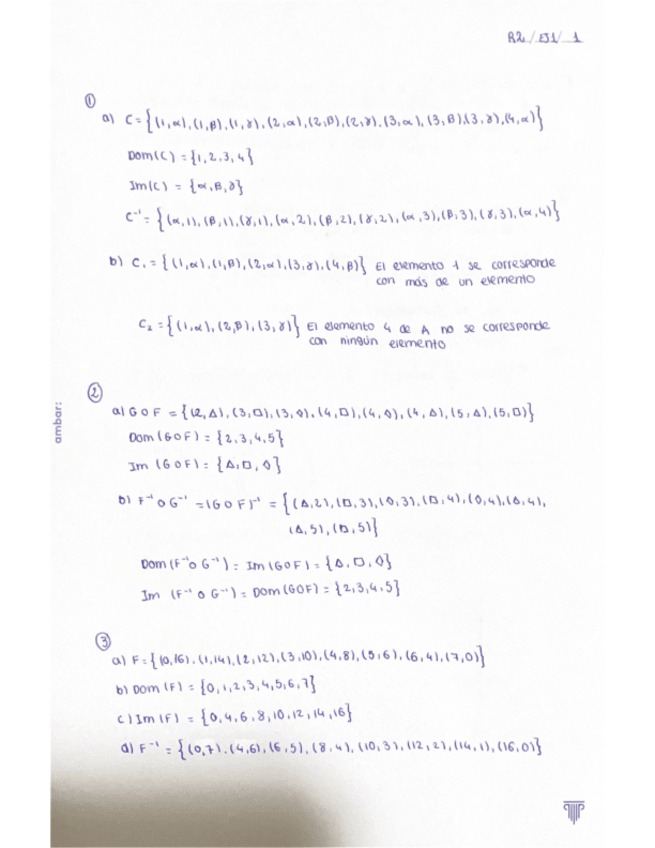 R2/EJ1/ 1
①
a) C = {(1,α),(1,β),(1,γ),(2,α),(2,β),(2,γ),(3,α),(3,β),(3,γ),(4,α)}
Dom(C) = {1,2,3,4}
Im(C) = {α,β,γ}
C⁻¹ = {(α,1),(β,1),(γ,1),(α,2),(β,2),(γ,2),(α,3),(β,3),(γ,3),(α,4)}
b) C₁ = {(1,α),(1,β),(2,α),(3,γ),(4,β)} El elemento 1 se corresponde
con más de un elemento
C₂ = {(1,α),(2,β),(3,γ)} El elemento 4 de A no se corresponde
con ningún elemento
②
a) G O F = {(2,Δ),(3,□),(3,◊),(4,□),(4,◊),(4,Δ),(5,Δ),(5,□)}
Dom (G O F) = {2,3,4,5}
Im (G O F) = {Δ,□,◊}
b) F⁻¹ O G⁻¹ = (G O F)⁻¹ = {(Δ,2),(□,3),(◊,3),(□,4),(◊,4),(Δ,4),
(Δ,5),(□,5)}
Dom (F⁻¹ O G⁻¹) = Im (G O F) = {Δ,□,◊}
Im (F⁻¹ O G⁻¹) = Dom (G O F) = {2,3,4,5}
③
a) F = {(0,16),(1,14),(2,12),(3,10),(4,8),(5,6),(6,4),(7,0)}
b) Dom (F) = {0,1,2,3,4,5,6,7}
c) Im (F) = {0,4,6,8,10,12,14,16}
d) F⁻¹ = {(0,7),(4,6),(6,5),(8,4),(10,3),(12,2),(14,1),(16,0)}
ambar: